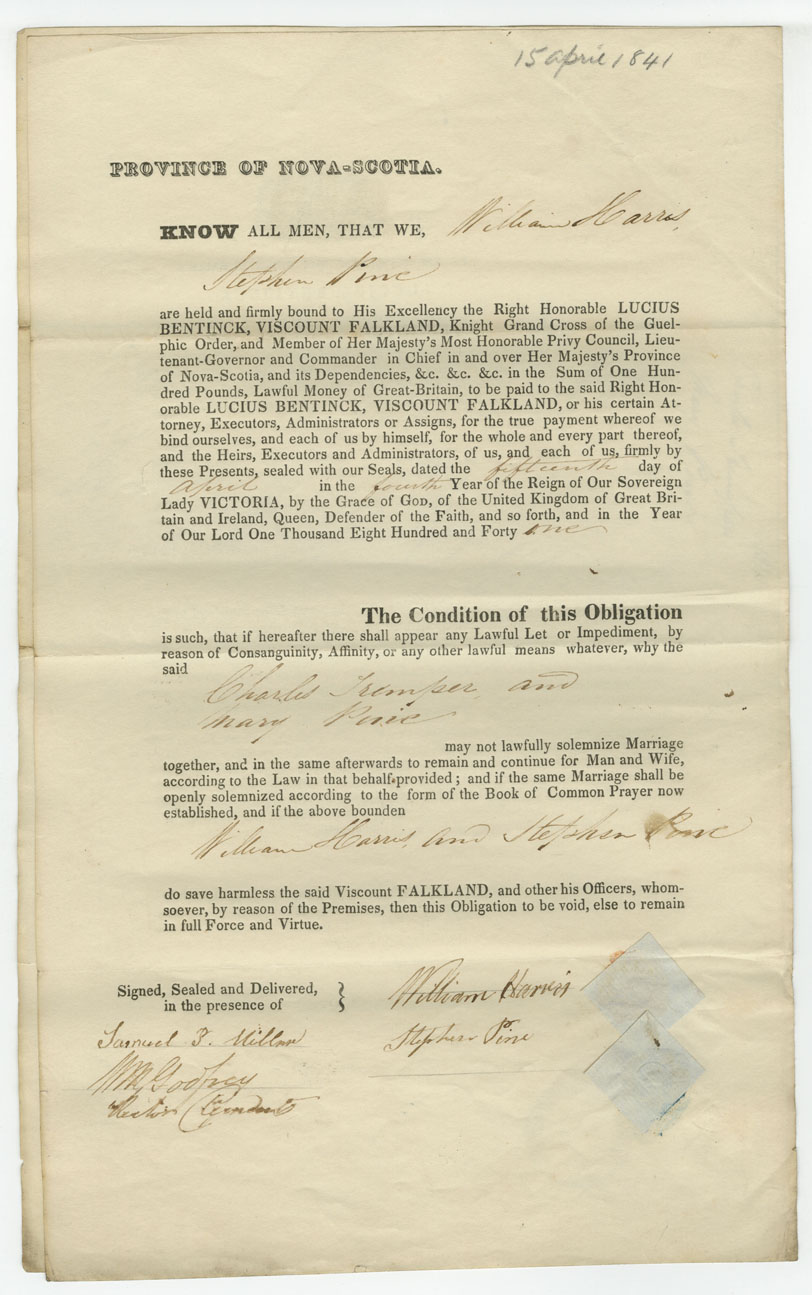 15 april 1841
PROVINCE OF NOVA-SCOTIA.
KNOW ALL MEN, THAT WE, William Harris,
Stephen Pine
are held and firmly bound to His Excellency the Right Honorable LUCIUS
BENTINCK, VISCOUNT FALKLAND, Knight Grand Cross of the Guel-
phic Order, and Member of Her Majesty's Most Honorable Privy Council, Lieu-
tenant-Governor and Commander in Chief in and over Her Majesty's Province
of Nova-Scotia, and its Dependencies, &c. &c. &c. in the Sum of One Hun-
dred Pounds, Lawful Money of Great-Britain, to be paid to the said Right Hon-
orable LUCIUS BENTINCK, VISCOUNT FALKLAND, or his certain At-
torney, Executors, Administrators or Assigns, for the true payment whereof we
bind ourselves, and each of us by himself, for the whole and every part thereof,
and the Heirs, Executors and Administrators, of us, and each of us, firmly by
these Presents, sealed with our Seals, dated the fifteenth day of
April in the fourth Year of the Reign of Our Sovereign
Lady VICTORIA, by the Grace of GOD, of the United Kingdom of Great Bri-
tain and Ireland, Queen, Defender of the Faith, and so forth, and in the Year
of Our Lord One Thousand Eight Hundred and Forty one
The Condition of this Obligation
is such, that if hereafter there shall appear any Lawful Let or Impediment, by
reason of Consanguinity, Affinity, or any other lawful means whatever, why the
said
Charles Tremper and
Mary Pine
may not lawfully solemnize Marriage
together, and in the same afterwards to remain and continue for Man and Wife,
according to the Law in that behalf provided; and if the same Marriage shall be
openly solemnized according to the form of the Book of Common Prayer now
established, and if the above bounden
William Harris and Stephen Pine
do save harmless the said Viscount FALKLAND, and other his Officers, whom-
soever, by reason of the Premises, then this Obligation to be void, else to remain
in full Force and Virtue.
Signed, Sealed and Delivered,
in the presence of
William Harris
Samuel Stephen Pine
Godfrey
Rector Clements